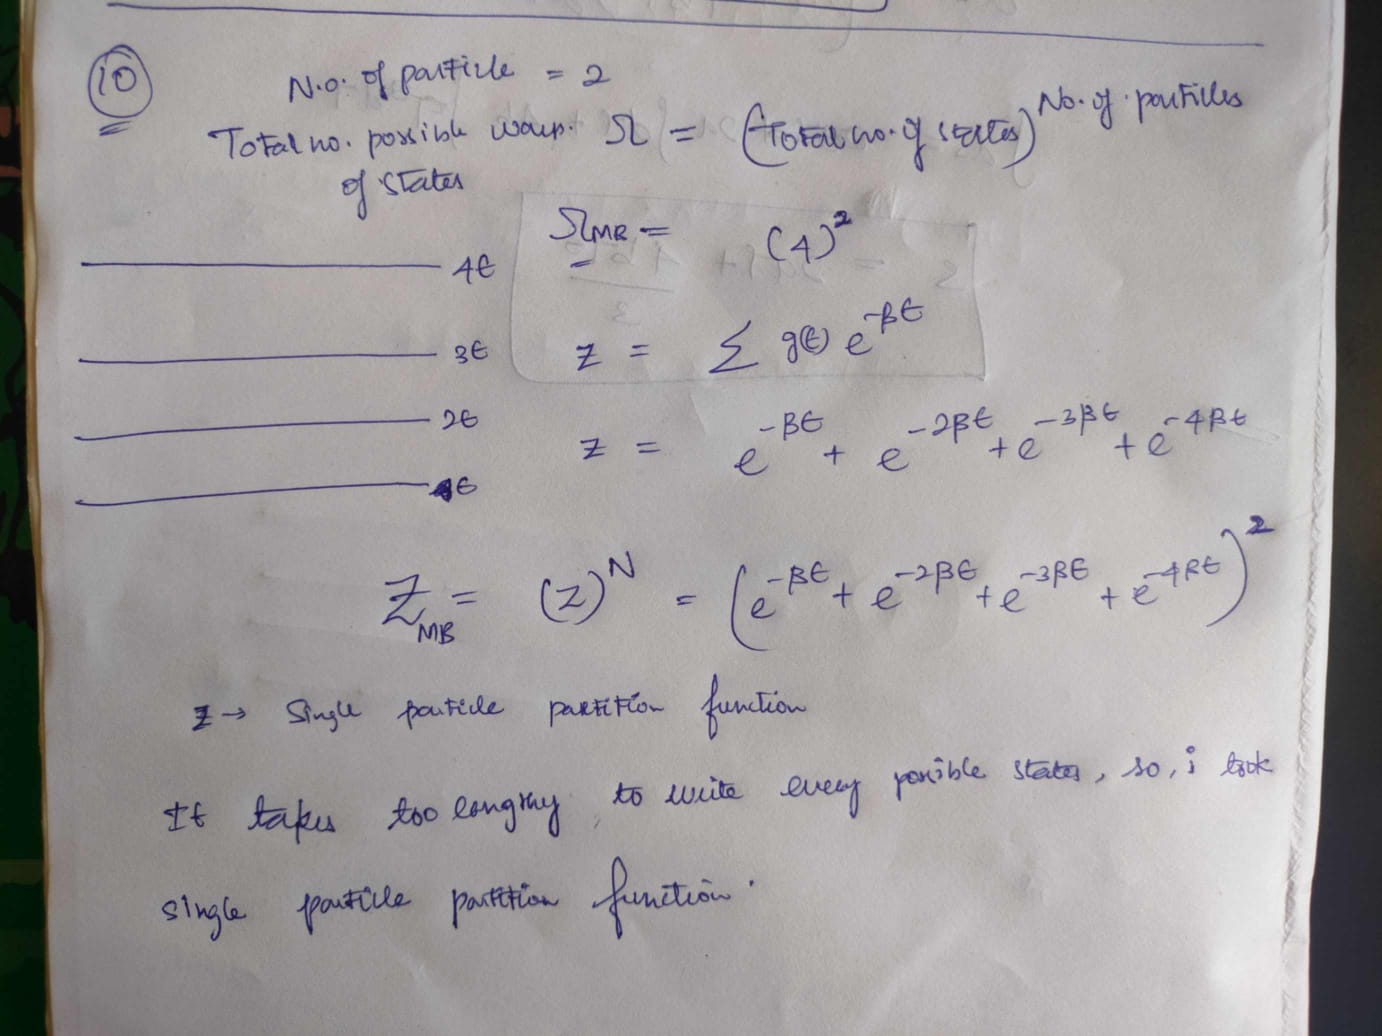 10
N.o. of particle = 2
Total no. possible ways. Ω = (Total no. of states)^No. of particles
of states
Ω_MB = (4)^2
4ϵ
z = Σ g(ϵ) e^-βϵ
3ϵ
2ϵ
z = e^-βϵ + e^-2βϵ + e^-3βϵ + e^-4βϵ
ϵ
Z_MB = (z)^N = (e^-βϵ + e^-2βϵ + e^-3βϵ + e^-4βϵ)^2
z → Single particle partition function
It takes too lengthy to write every possible states, so, i took
single particle partition function.